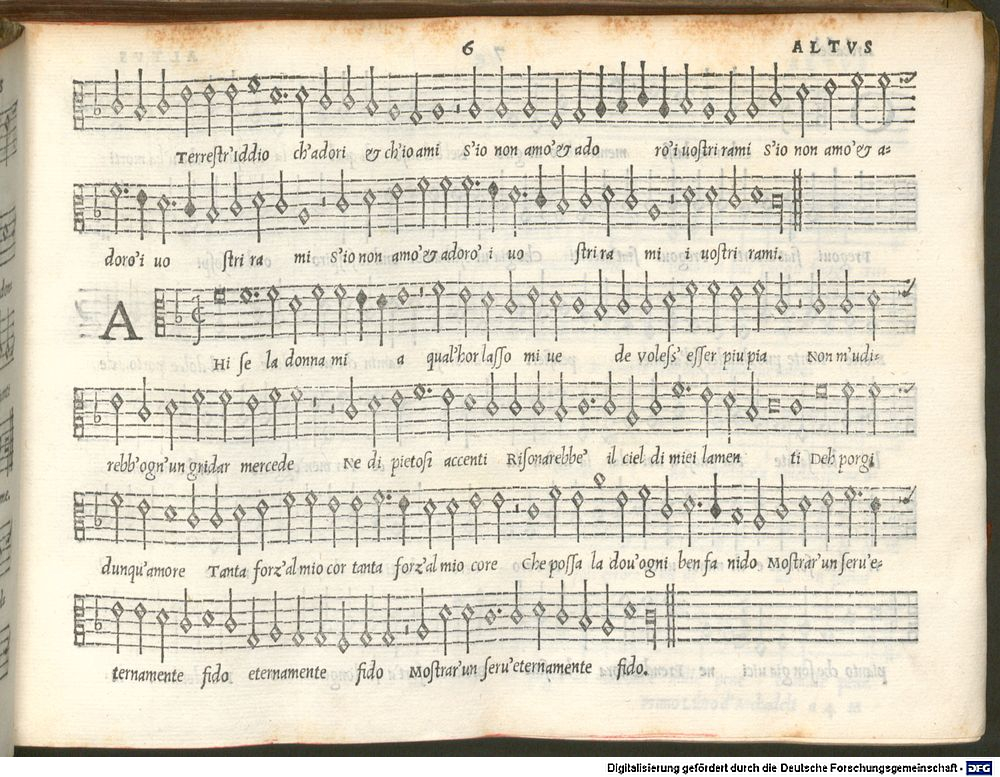 6 ALTVS
Terrestr'Iddio ch'adori & ch'io ami S'io non amo' & ado ro' i uostri rami S'io non amo' & a-
doro' i uo stri ra mi S'io non amo' & adoro' i uo stri ra mi i uostri rami.
AHi se la donna mi a qual'hor lasso mi ue de Voless' esser piu pia Non m'udi-
rebb' ogn'un gridar mercede Ne di pietosi accenti Risonarebbe' il ciel di miei lamen ti Deh porgi
dunqu'amore Tanta forz'al mio cor tanta forz'al mio core Che possa la dou'ogni ben fa nido Mostrar'un seru'e-
ternamente fido eternamente fido Mostrar'un seru'eternamente fido.
Digitalisierung gefördert durch die Deutsche Forschungsgemeinschaft - DFG